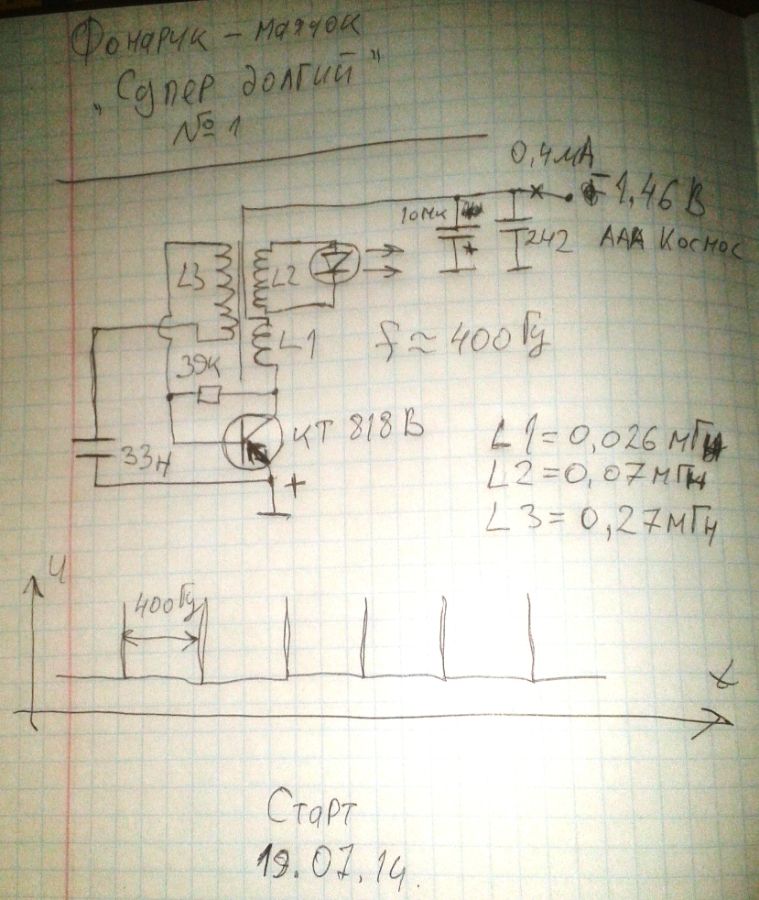 Фонарик - маячок
"Супер долгий"
№1
0,4мА
-1,46 В
10мк
2н2
ААА Космос
L3
L2
L1
f ≈ 400 Гц
39к
КТ 818 В
33н
+
+
L1 = 0,026 мГн
L2 = 0,07 мГн
L3 = 0,27 мГн
U
400Гц
t
Старт
19.07.14.